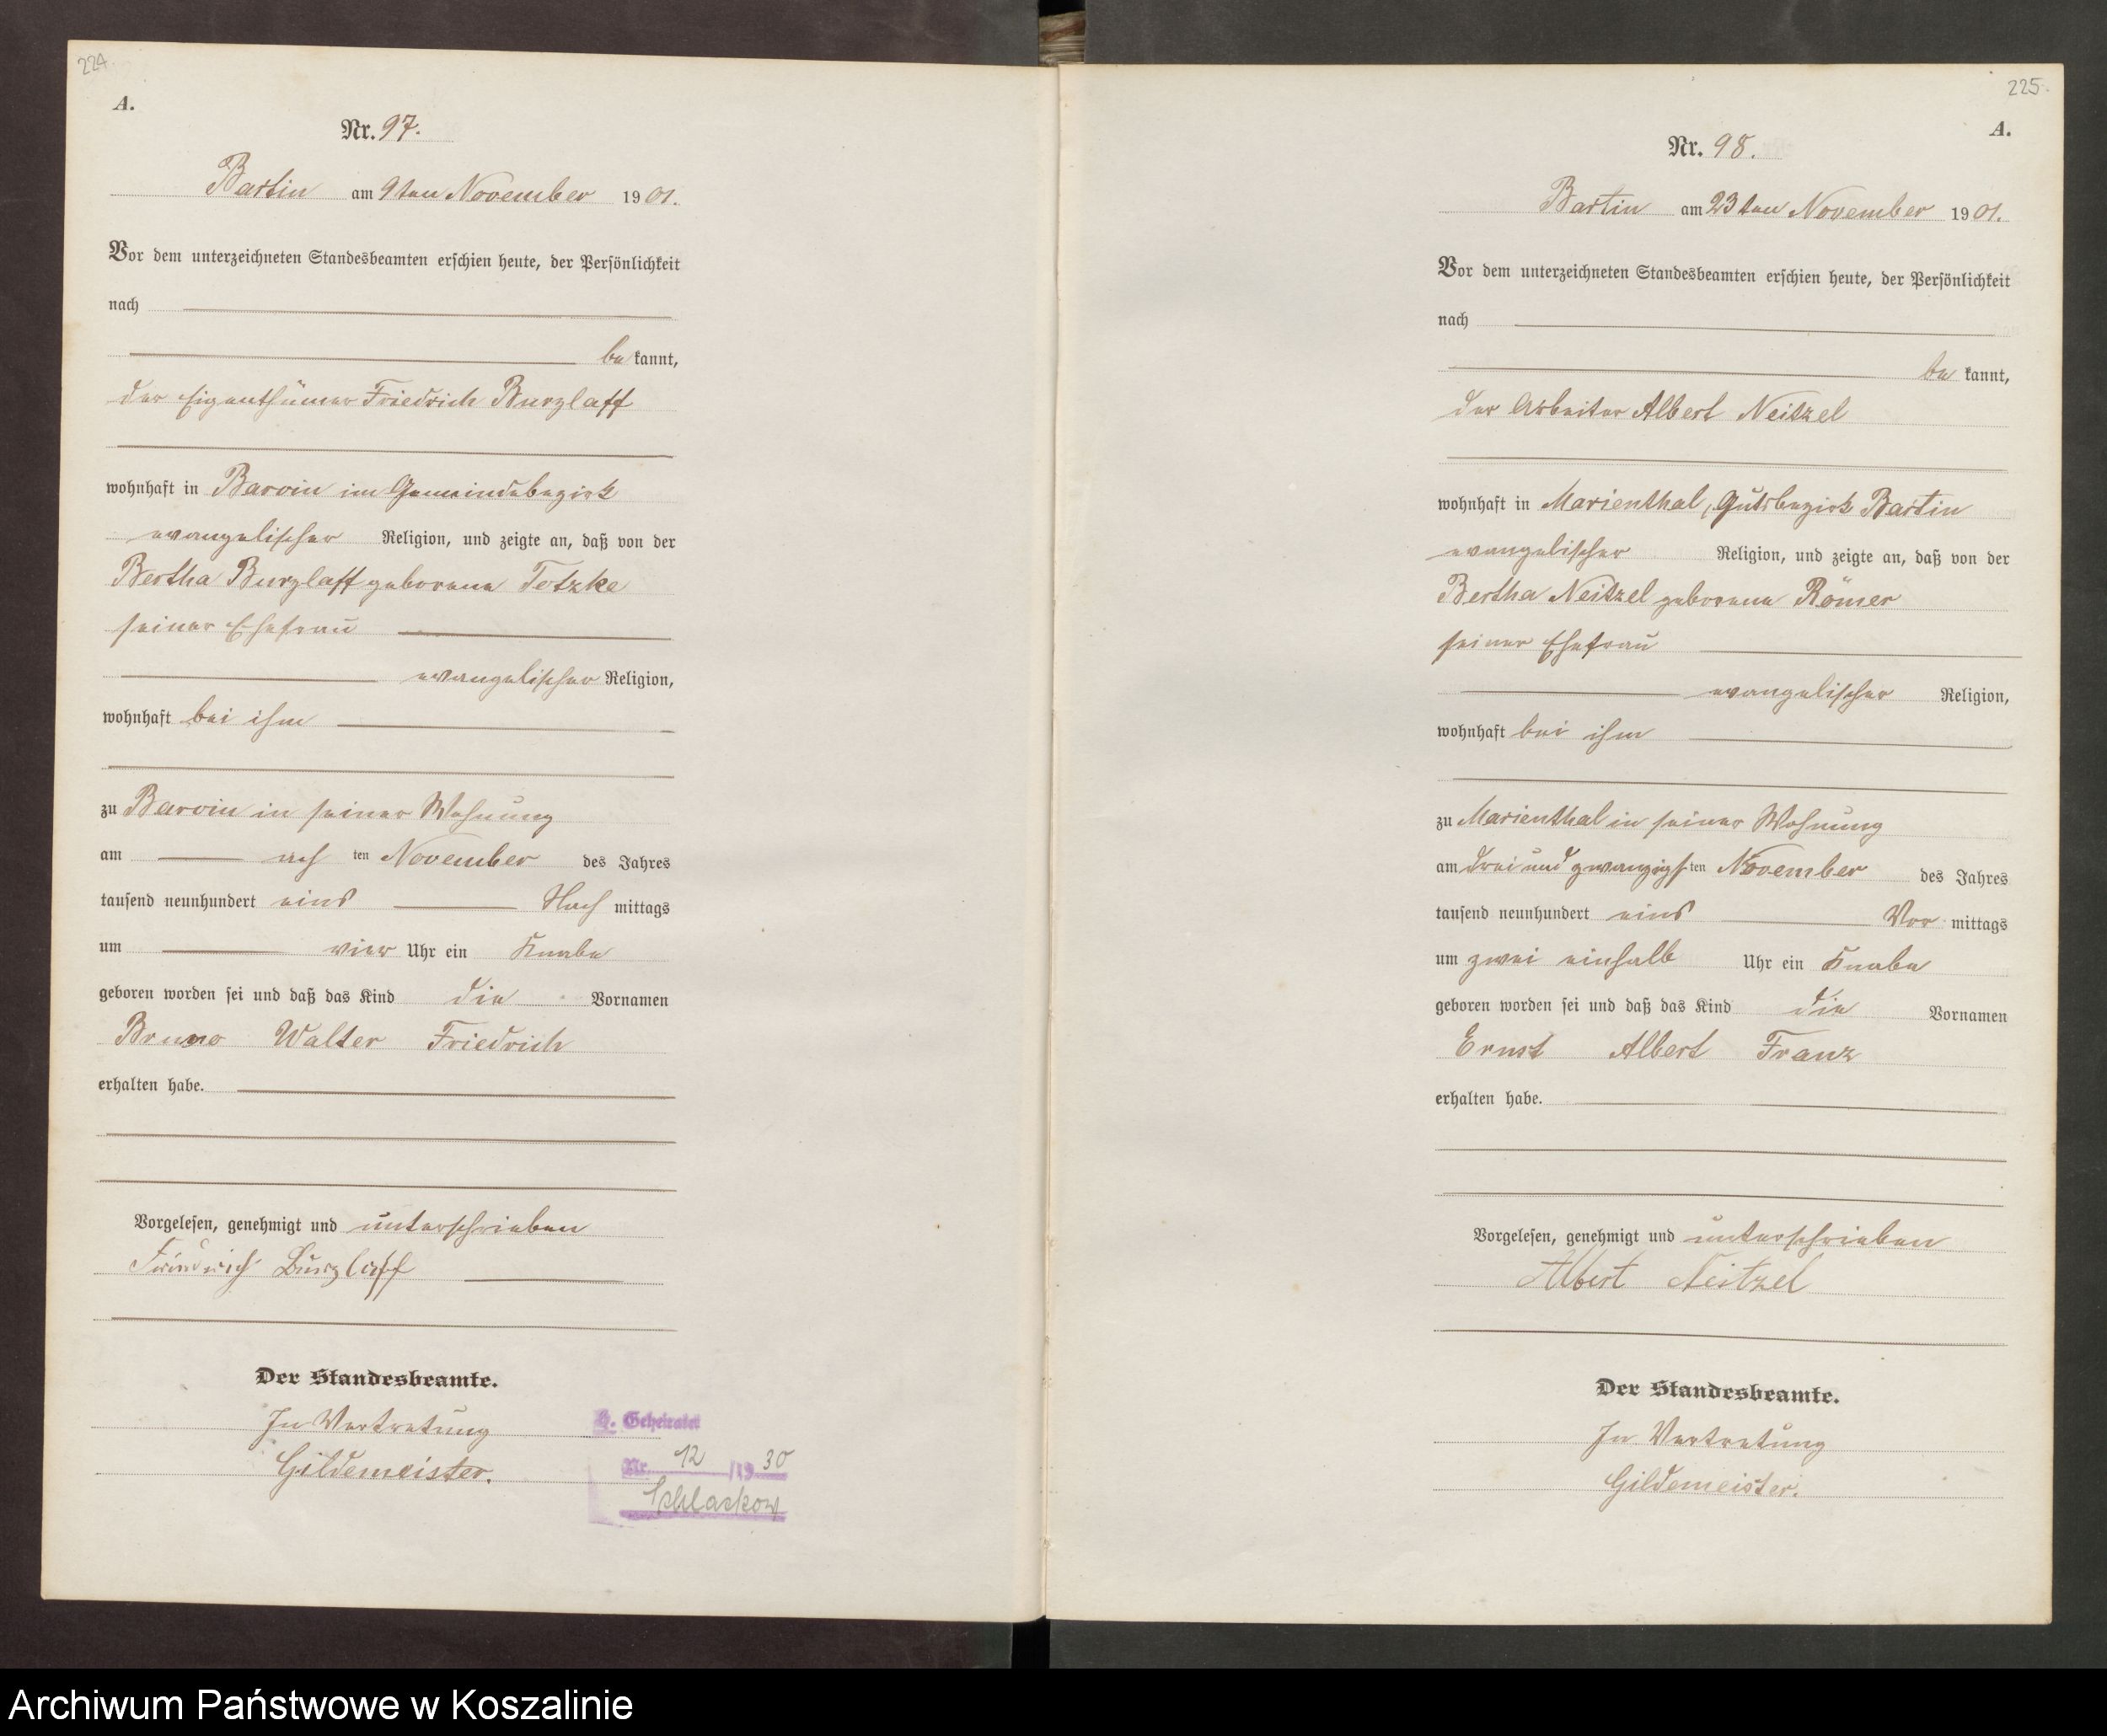 224
A.
Nr. 97.
Bartin am 9ten November 1901.
Vor dem unterzeichneten Standesbeamten erschien heute, der Persönlichkeit
nach
be kannt,
der Eigenthümer Friedrich Burzlaff
wohnhaft in Barvin im Gemeindebezirk
evangelischer Religion, und zeigte an, daß von der
Bertha Burzlaff geborene Tetzke
seiner Ehefrau
evangelischer Religion,
wohnhaft bei ihm
zu Barvin in seiner Wohnung
am acht ten November des Jahres
tausend neunhundert eins Nach mittags
um vier Uhr ein Knabe
geboren worden sei und daß das Kind die Vornamen
Bruno Walter Friedrich
erhalten habe.
Vorgelesen, genehmigt und unterschrieben
Friedrich Burzlaff
Der Standesbeamte.
In Vertretung
Gildemeister.
Geheiratet
Nr. 12 /1930
Schlackow
225
A.
Nr. 98.
Bartin am 23ten November 1901.
Vor dem unterzeichneten Standesbeamten erschien heute, der Persönlichkeit
nach
be kannt,
der Arbeiter Albert Neitzel
wohnhaft in Marienthal, Gutsbezirk Bartin
evangelischer Religion, und zeigte an, daß von der
Bertha Neitzel geborene Römer
seiner Ehefrau
evangelischer Religion,
wohnhaft bei ihm
zu Marienthal in seiner Wohnung
am drei und zwanzigs ten November des Jahres
tausend neunhundert eins Vor mittags
um zwei einhalb Uhr ein Knabe
geboren worden sei und daß das Kind die Vornamen
Ernst Albert Franz
erhalten habe.
Vorgelesen, genehmigt und unterschrieben
Albert Neitzel
Der Standesbeamte.
In Vertretung
Gildemeister.
Archiwum Państwowe w Koszalinie